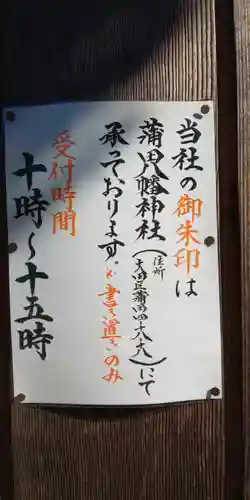 当社の御朱印は
蒲田八幡神社(住所 大田区蒲田四-十八-十八)にて
承っております。※書き置きのみ
受付時間
十時〜十五時